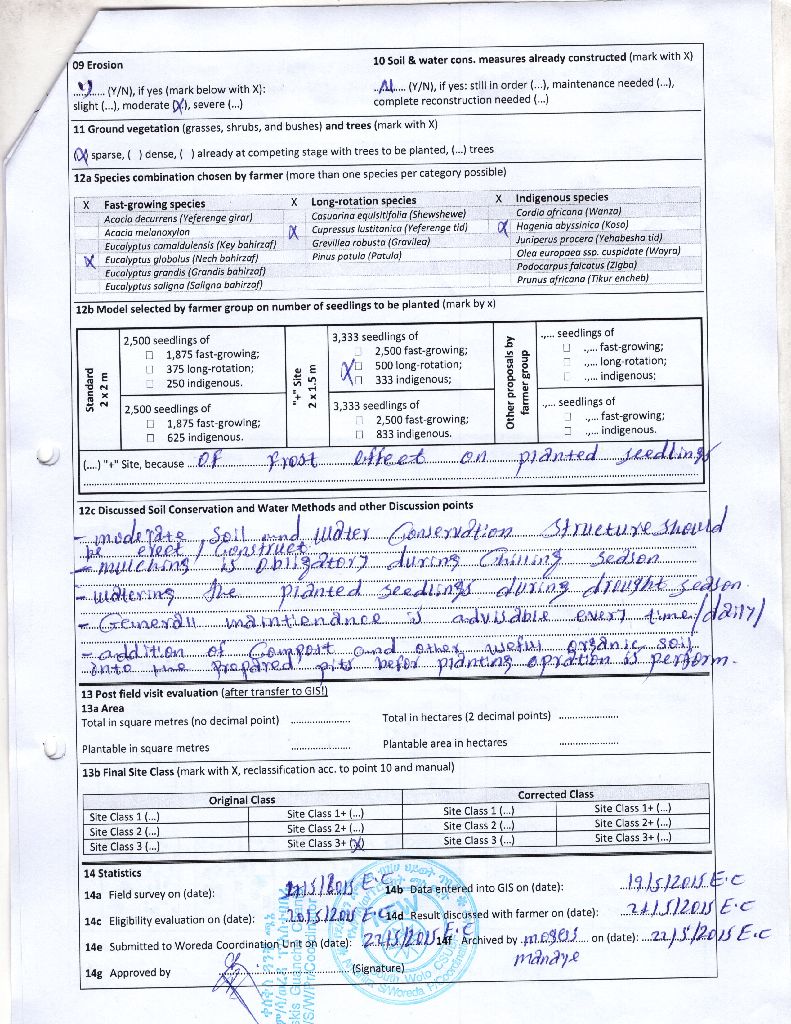 09 Erosion
10 Soil & water cons. measures already constructed (mark with X)
..Y..... (Y/N), if yes (mark below with X):
..N.... (Y/N), if yes: still in order (...), maintenance needed (...),
slight (...), moderate (X), severe (...)
complete reconstruction needed (...)
11 Ground vegetation (grasses, shrubs, and bushes) and trees (mark with X)
(X) sparse, ( ) dense, ( ) already at competing stage with trees to be planted, (...) trees
12a Species combination chosen by farmer (more than one species per category possible)
X Fast-growing species
Acacia decurrens (Yeferenge girar)
Acacia melanoxylon
Eucalyptus camaldulensis (Key bahirzaf)
X Eucalyptus globolus (Nech bahirzaf)
Eucalyptus grandis (Grandis bahirzaf)
Eucalyptus saligna (Saligna bahirzaf)
X Long-rotation species
Casuarina equisitifolia (Shewshewe)
X Cupressus lustitanica (Yeferenge tid)
Grevillea robusta (Gravilea)
Pinus patula (Patula)
X Indigenous species
Cordia africana (Wanza)
X Hagenia abyssinica (Koso)
Juniperus procera (Yehabesha tid)
Olea europaea ssp. cuspidate (Wayra)
Podocarpus falcatus (Zigba)
Prunus africana (Tikur encheb)
12b Model selected by farmer group on number of seedlings to be planted (mark by x)
Standard
2 x 2 m
2,500 seedlings of
☐ 1,875 fast-growing;
☐ 375 long-rotation;
☐ 250 indigenous.
2,500 seedlings of
☐ 1,875 fast-growing;
☐ 625 indigenous.
"+" Site
2 x 1.5 m
3,333 seedlings of
☐ 2,500 fast-growing;
X ☐ 500 long-rotation;
☐ 333 indigenous;
3,333 seedlings of
☐ 2,500 fast-growing;
☐ 833 indigenous.
Other proposals by
farmer group
.,... seedlings of
☐ .,... fast-growing;
☐ .,... long-rotation;
☐ .,... indigenous;
.,... seedlings of
☐ .,... fast-growing;
☐ .,... indigenous.
(....) "+" Site, because ...of frost effect on planted seedlings
12c Discussed Soil Conservation and Water Methods and other Discussion points
- moderate soil and water Conservation structure should
be erect / Construct
- mulching is obligatory during Chilling season
- watering the planted seedlings during drought season.
- Generall maintienance is advisable every time/daily/
- addition of Compost and other useful organic soil
into the prepared pits befor planting opration is perform.
13 Post field visit evaluation (after transfer to GIS!)
13a Area
Total in square metres (no decimal point) .....................
Total in hectares (2 decimal points) .....................
Plantable in square metres .....................
Plantable area in hectares .....................
13b Final Site Class (mark with X, reclassification acc. to point 10 and manual)
Original Class
Corrected Class
Site Class 1 (...)
Site Class 1+ (...)
Site Class 1 (...)
Site Class 1+ (...)
Site Class 2 (...)
Site Class 2+ (...)
Site Class 2 (...)
Site Class 2+ (...)
Site Class 3 (...)
Site Class 3+ (X)
Site Class 3 (...)
Site Class 3+ (...)
14 Statistics
14a Field survey on (date): /5/2015 E.C
14b Data entered into GIS on (date): 19/5/2015 E.C
14c Eligibility evaluation on (date): 20/5/2015 E.C
14d Result discussed with farmer on (date): 21/5/2015 E.C
14e Submitted to Woreda Coordination Unit on (date): 22/5/2015 E.C
14f Archived by mogess on (date): 22/5/2015 E.C
manaye
14g Approved by ..................... (Signature)